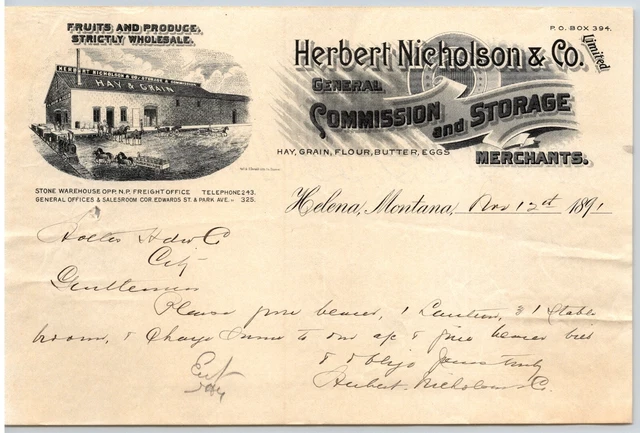 FRUITS AND PRODUCE,
STRICTLY WHOLESALE.
HERBERT NICHOLSON & CO. STORAGE & COMMISSION
HAY & GRAIN
STONE WAREHOUSE OPP. N.P. FREIGHT OFFICE TELEPHONE 243.
GENERAL OFFICES & SALESROOM COR. EDWARDS ST. & PARK AVE. - 325.
P.O. BOX 394.
Herbert Nicholson & Co. Limited
GENERAL
COMMISSION and STORAGE
HAY, GRAIN, FLOUR, BUTTER, EGGS
MERCHANTS.
Helena, Montana, Nov 12th 1891
Holter Hdw Co
City
Gentlemen
Please give bearer, 1 Lantern, & 1 Stable
broom, & charge same to our a/c & give bearer bill
& oblige Yours truly
Herbert Nicholson & Co.